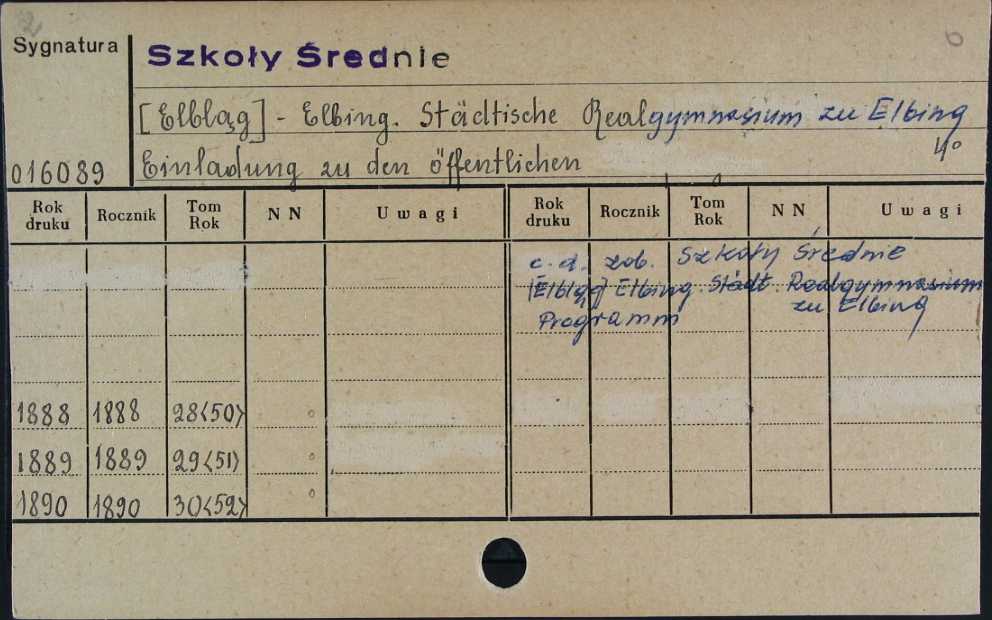 Sygnatura
Szkoły Średnie
[Elbląg] - Elbing. Städtische Realgymnasium zu Elbing
4°
016089
Einladung zu den öffentlichen
Rok druku Rocznik Tom Rok NN Uwagi Rok druku Rocznik Tom Rok NN Uwagi
c.d. zob. Szkoły Średnie
[Elbląg] Elbing Städt. Realgymnasium
zu Elbing
Programm
1888 1888 28<50>
1889 1889 29<51>
1890 1890 30<52>